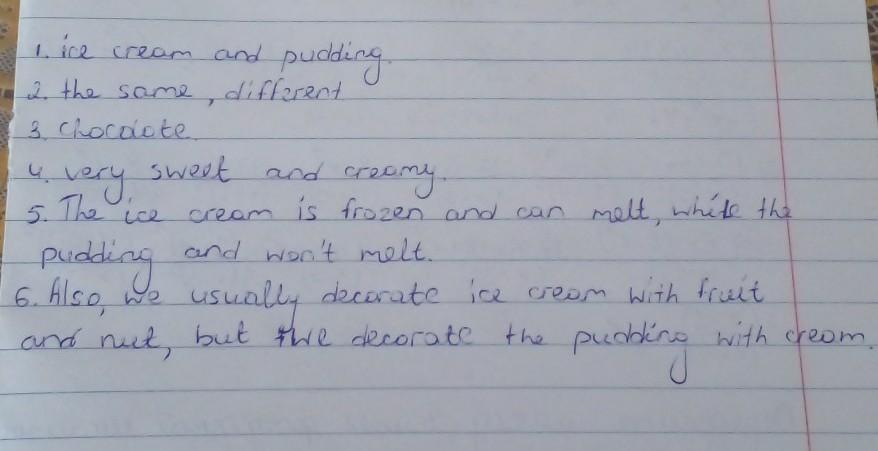 1. ice cream and pudding.
2. the same, different
3. Chocolote.
4. very sweet and creamy.
5. The ice cream is frozen and can melt, while the
pudding and won't melt.
6. Also, we usually decorate ice cream with fruit
and nut, but we decorate the pudding with cream.